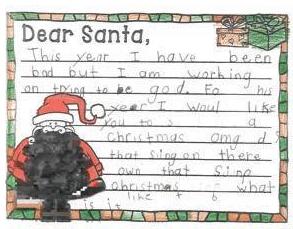 Dear Santa,
This year I have been
bad but I am working
on trying to be god. Fo his
year I woul like
you to s a
Christmas omg d s
that sing on there
own that sing
christmas what
like t b
is it